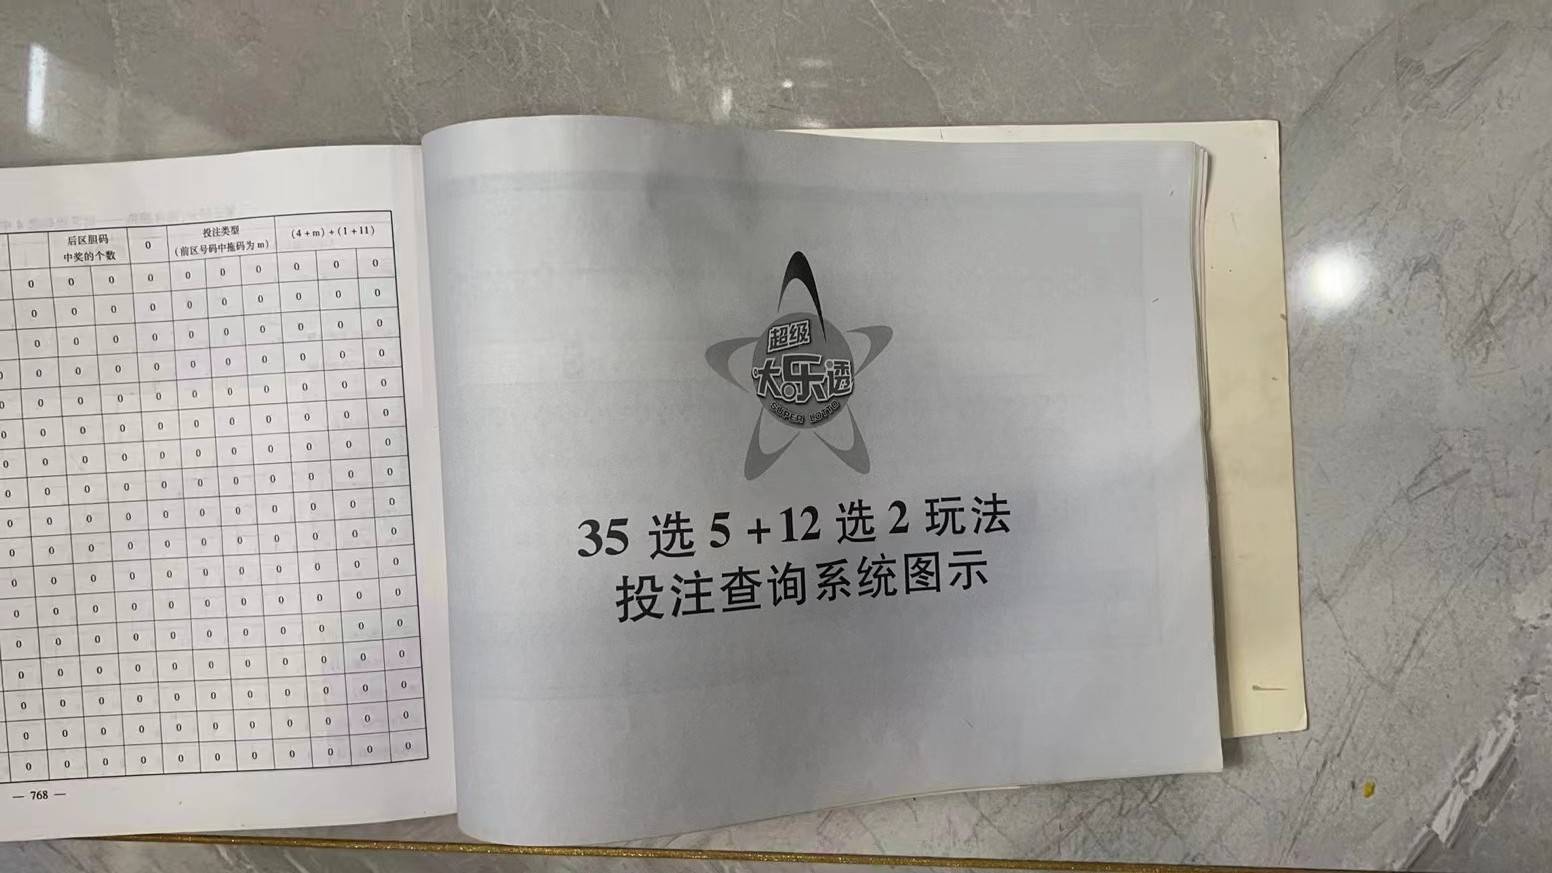 后区胆码
中奖的个数
0
投注类型
(前区号码中拖码为 m)
(4+m)+(1+11)
0 0 0 0 0 0 0 0 0 0
0 0 0 0 0 0 0 0 0 0
0 0 0 0 0 0 0 0 0 0
0 0 0 0 0 0 0 0 0 0 0
0 0 0 0 0 0 0 0 0 0 0
0 0 0 0 0 0 0 0 0 0 0
0 0 0 0 0 0 0 0 0 0 0
0 0 0 0 0 0 0 0 0 0
0 0 0 0 0 0 0 0 0 0
0 0 0 0 0 0 0 0 0 0
0 0 0 0 0 0 0 0 0 0
0 0 0 0 0 0 0 0 0 0
0 0 0 0 0 0 0 0 0 0
0 0 0 0 0 0 0 0 0 0
0 0 0 0 0 0 0 0 0 0
0 0 0 0 0 0 0 0 0 0
0 0 0 0 0 0 0 0 0 0
— 768 —
超级
大乐透
SUPER LOTTO
35 选 5 + 12 选 2 玩法
投注查询系统图示